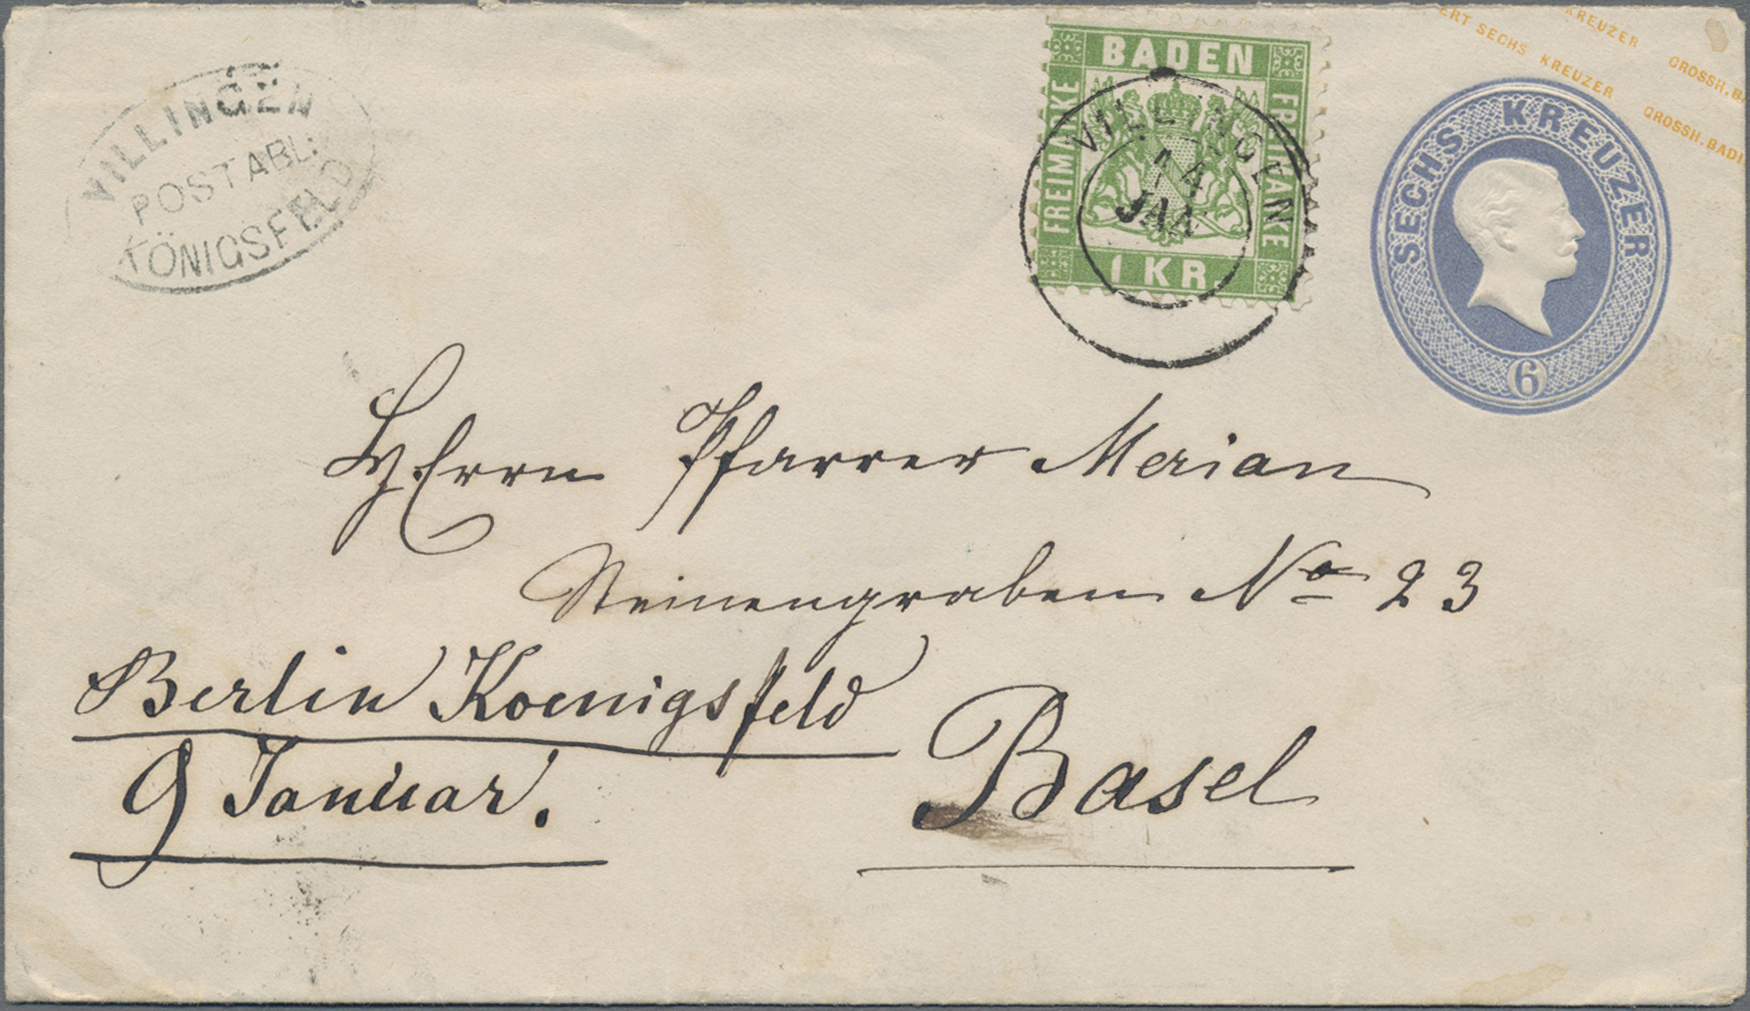 VILLINGEN
POSTABL:
KÖNIGSFELD
BADEN
FREIMARKE
FREIMARKE
1 KR.
VILLINGEN
14
JAN
ERT SECHS KREUZER GROSSH. BADI
KREUZER GROSSH. BA
SECHS KREUZER
6
Herrn Pfarrer Merian
Steinengraben No 23
Berlin Koenigsfeld
9 Januar.
Basel